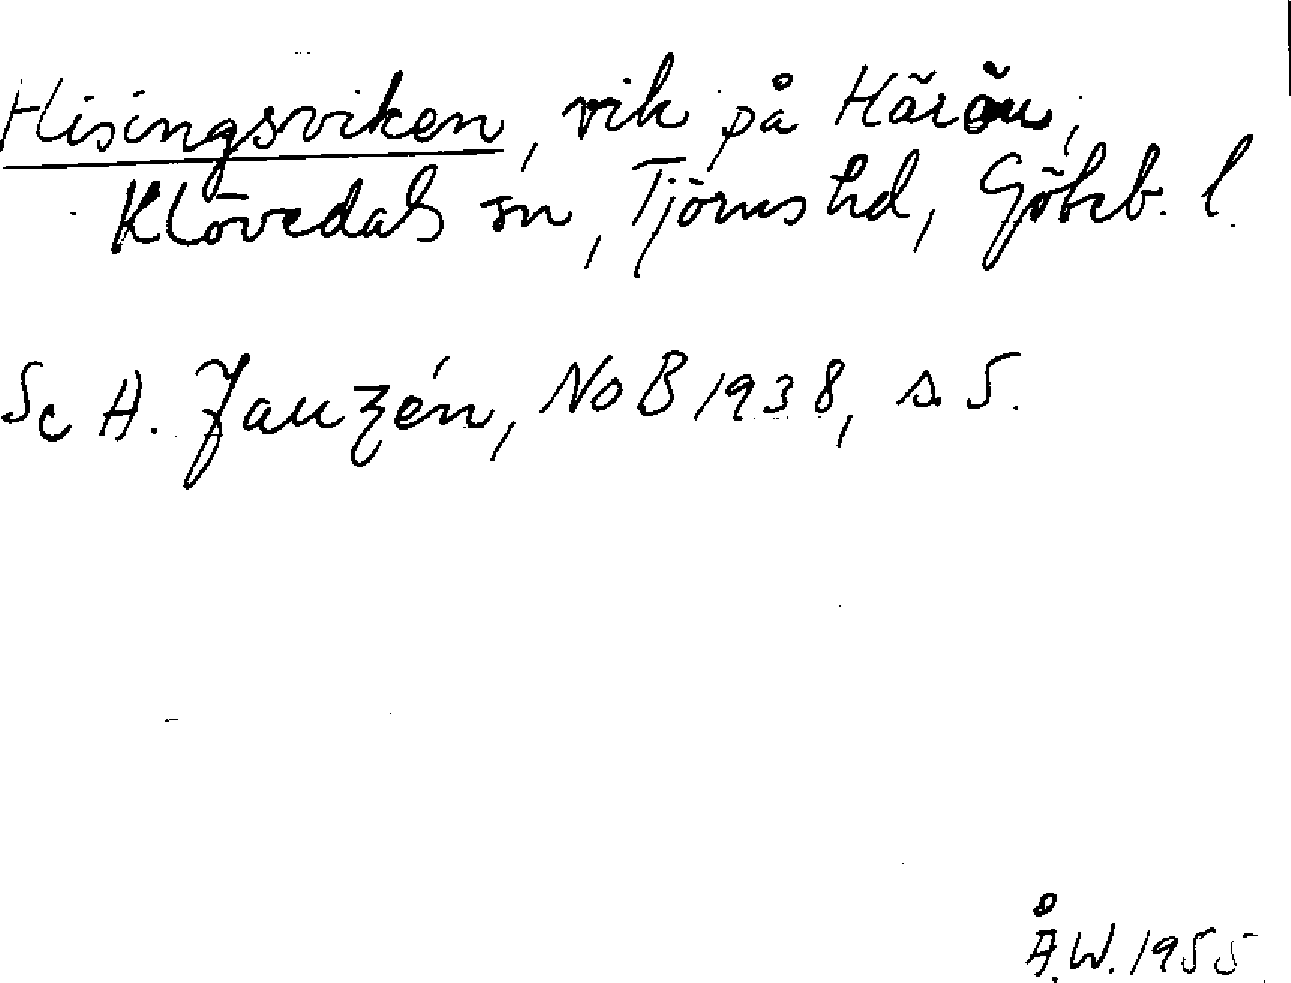 Hisingsviken, vik på Härön,
Klövedals sn, Tjörns hd, Göteb. l.
Se A. Janzén, NoB 1938, s. 5.
Å.W. 1955